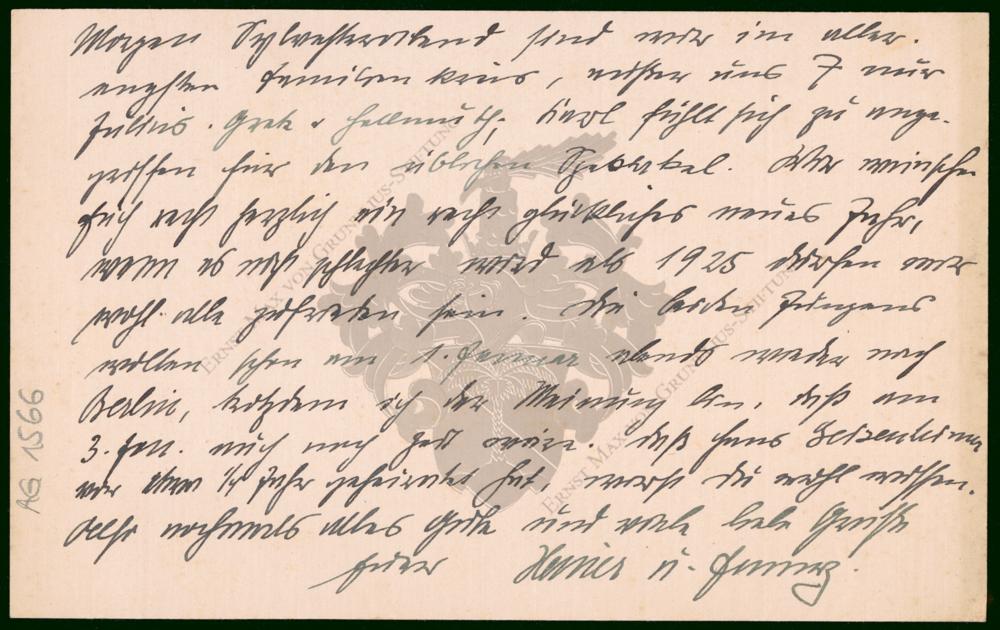 Morgen Sylvesterabend sind wir im aller-
engsten Familienkreis, außer uns 7 nur
Julius, Grete & Hellmuth, Karl fühlt sich zu ange-
griffen für den üblichen Spektakel. Wir wünschen
Euch recht herzlich ein recht glückliches neues Jahr,
wenn es nicht schlechter wird als 1925 dürfen wir
wohl alle zufrieden sein. Die beiden Jungens
wollen schon am 1. Januar abends wieder nach
Berlin, trotzdem ich der Meinung bin, daß am
3. Jan. auch noch Zeit wäre. Daß Hans
vor dem Jahr geheiratet hat, wirst Du wohl wissen.
Also nochmals alles Gute und viele liebe Grüße
Euer Heiner u.
AG 1566
ERNST MAX VON GRUNELIUS-STIFTUNG
ERNST MAX VON GRUNELIUS-STIFTUNG